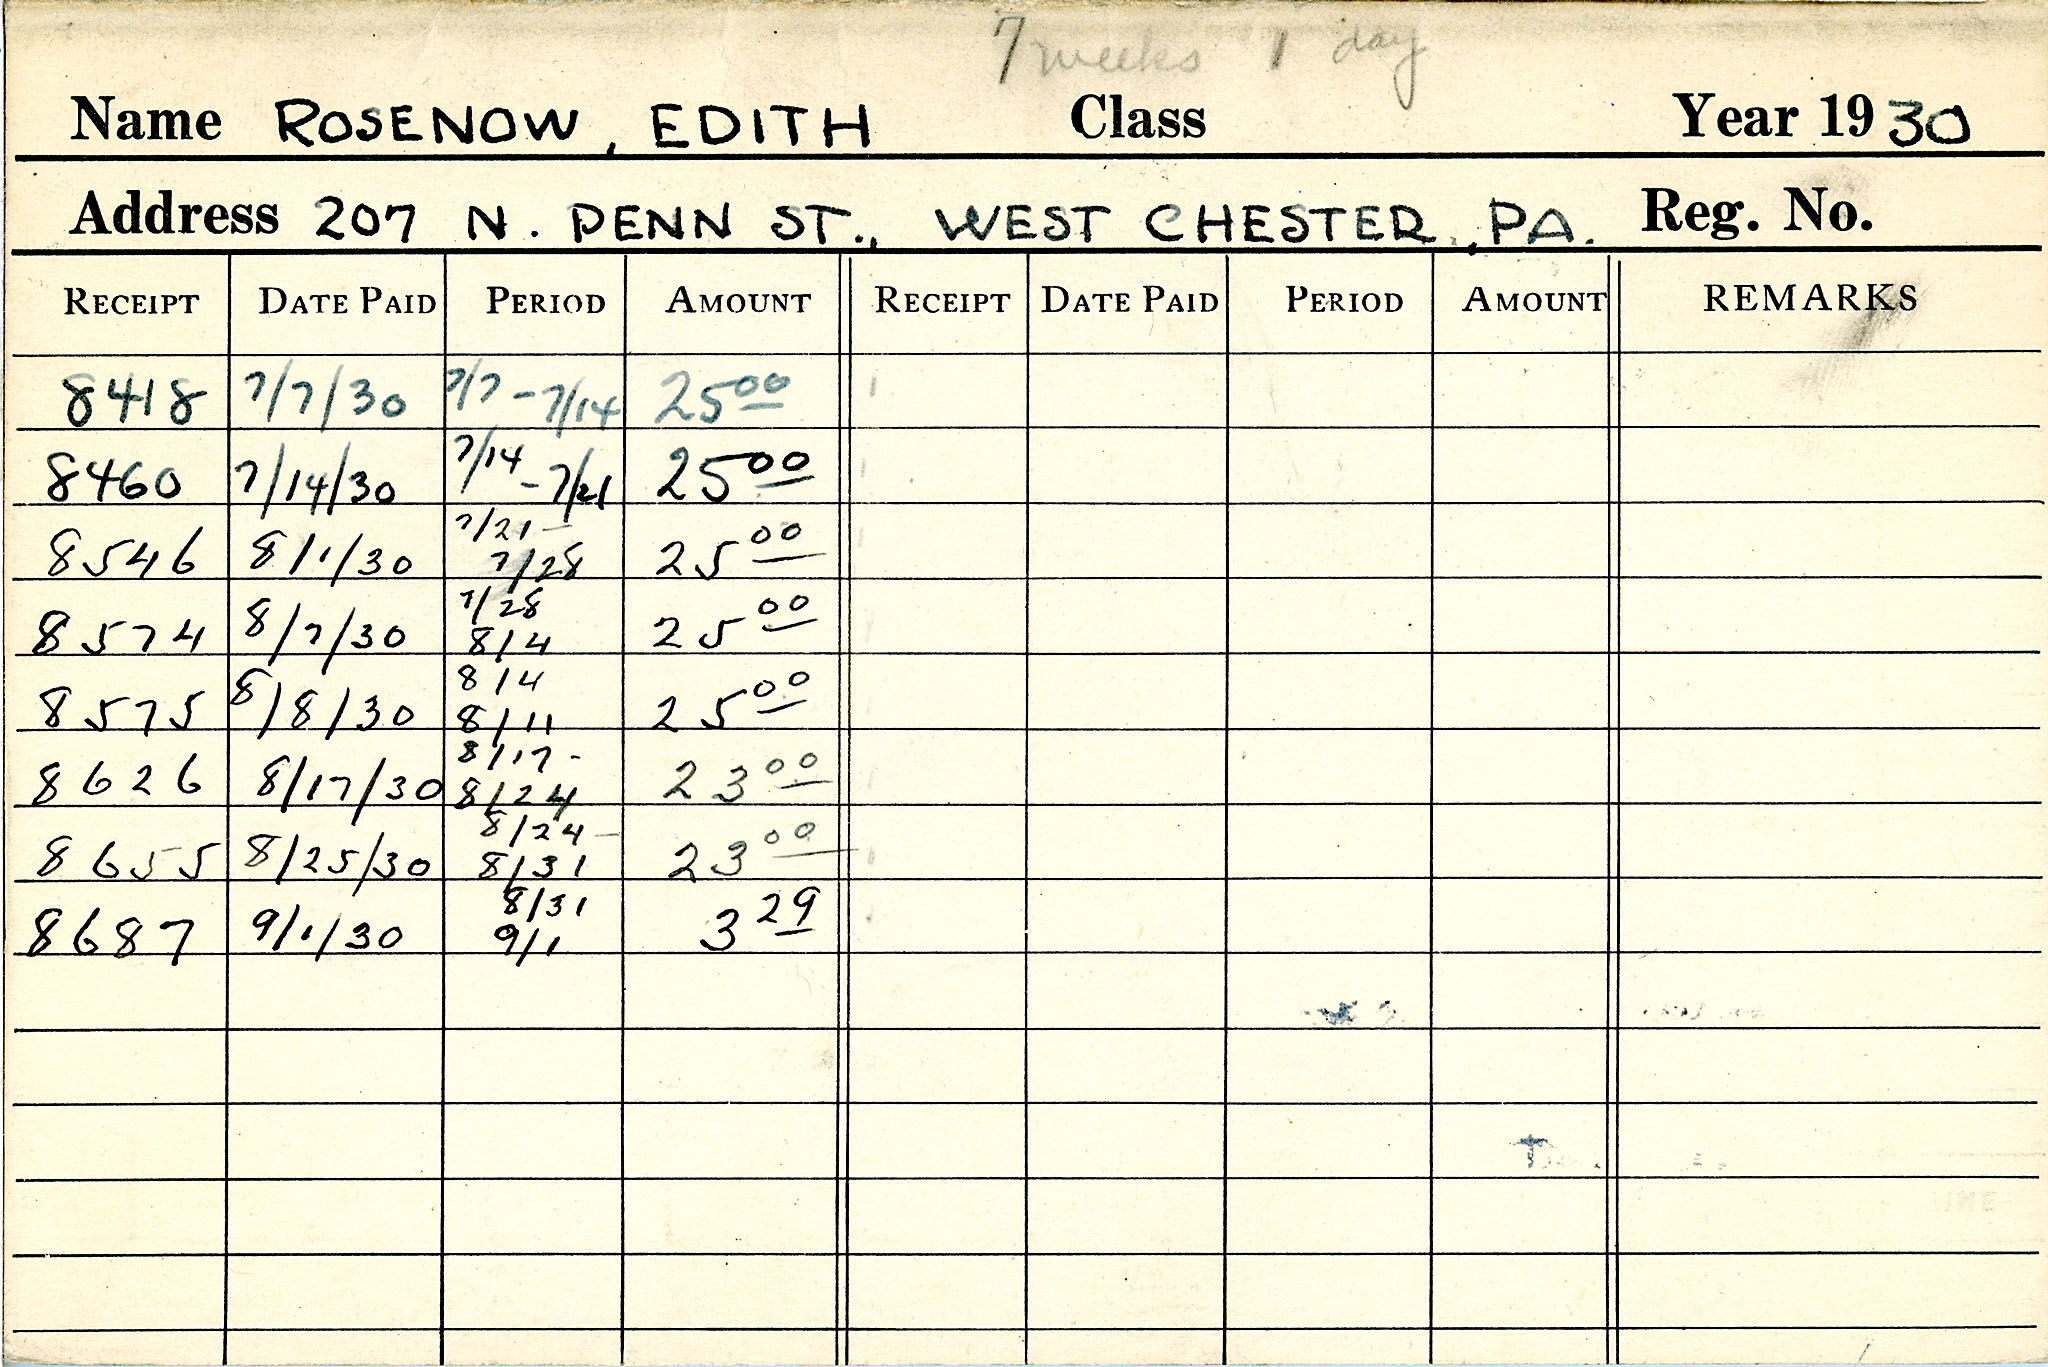 7 weeks 1 day
Name ROSENOW, EDITH Class Year 1930
Address 207 N. PENN ST., WEST CHESTER, PA. Reg. No.
RECEIPT DATE PAID PERIOD AMOUNT RECEIPT DATE PAID PERIOD AMOUNT REMARKS
8418 7/7/30 7/7-7/14 25 00
8460 7/14/30 7/14-7/21 25 00
8546 8/1/30 7/21-7/28 25 00
8574 8/7/30 7/28 8/4 25 00
8575 8/8/30 8/4 8/11 25 00
8626 8/17/30 8/17-8/24 23 00
8655 8/25/30 8/24-8/31 23 00
8687 9/1/30 8/31 9/1 3 29